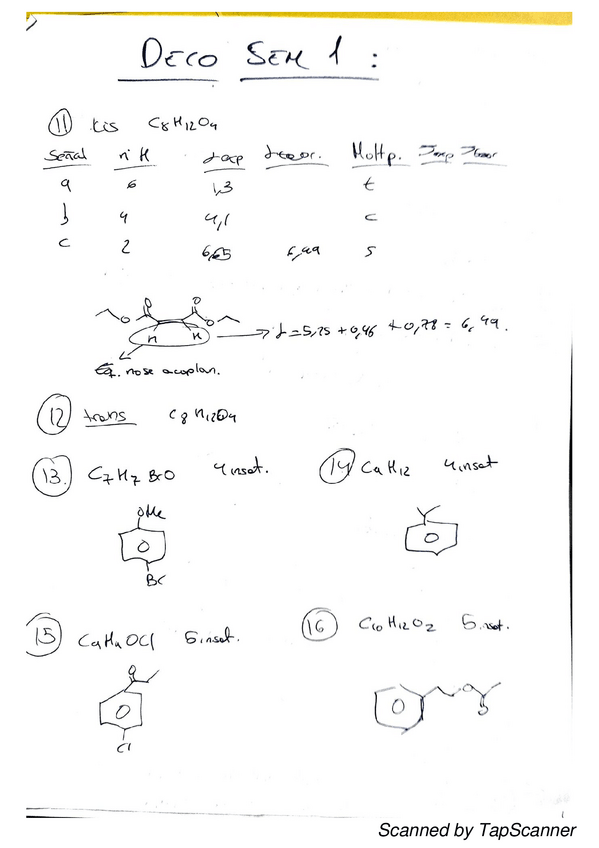 DECO SEM 1:
11 cis C8H12O4
Señal nº H δexp δteor. Multp. Jexp Jteor
a 6 1,3 t
b 4 4,1 c
c 2 6,65 6,49 s
O O
O O
H H → δ=5,25 + 0,46 + 0,78 = 6,49.
Eq. no se acoplan.
12 trans C8H12O4
13. C7H7BrO 4 insat. 14 C9H12 4 insat
OMe
Br
15 C9H9OCl 5 insat. 16 C10H12O2 5 insat.
O
O
O
Cl
Scanned by TapScanner